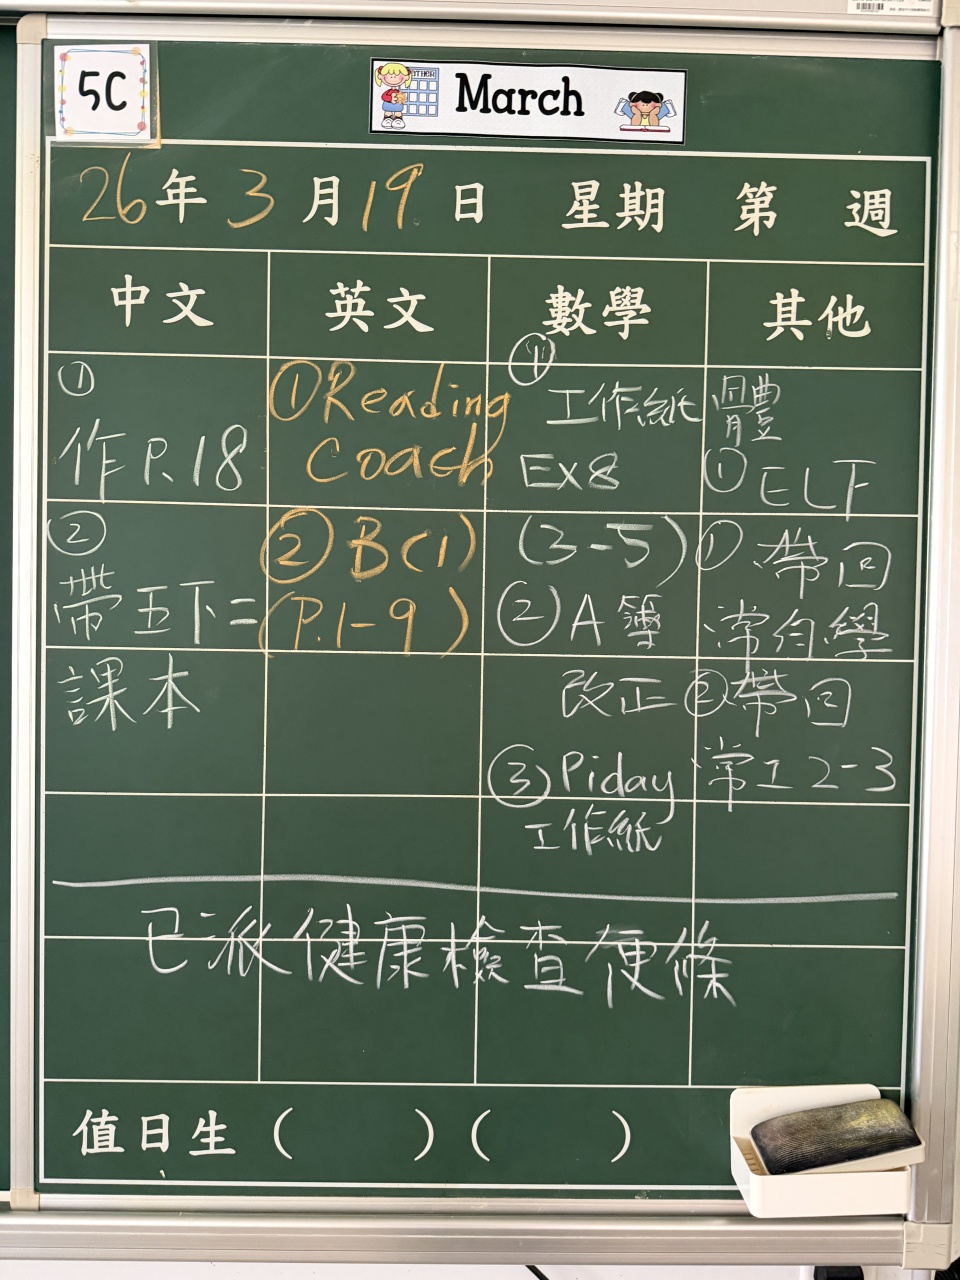 5C
March
26年3月19日 星期 第 週
中文 英文 數學 其他
①
作 P.18
②
帶五下二
課本
①Reading
Coach
②B(1)
(P.1-9)
①
工作紙
EX8
(3-5)
②A簿
改正
③Piday
工作紙
體
①ELF
①帶回
常自學
②帶回
常工2-3
已派健康檢查便條
值日生 ( ) ( )